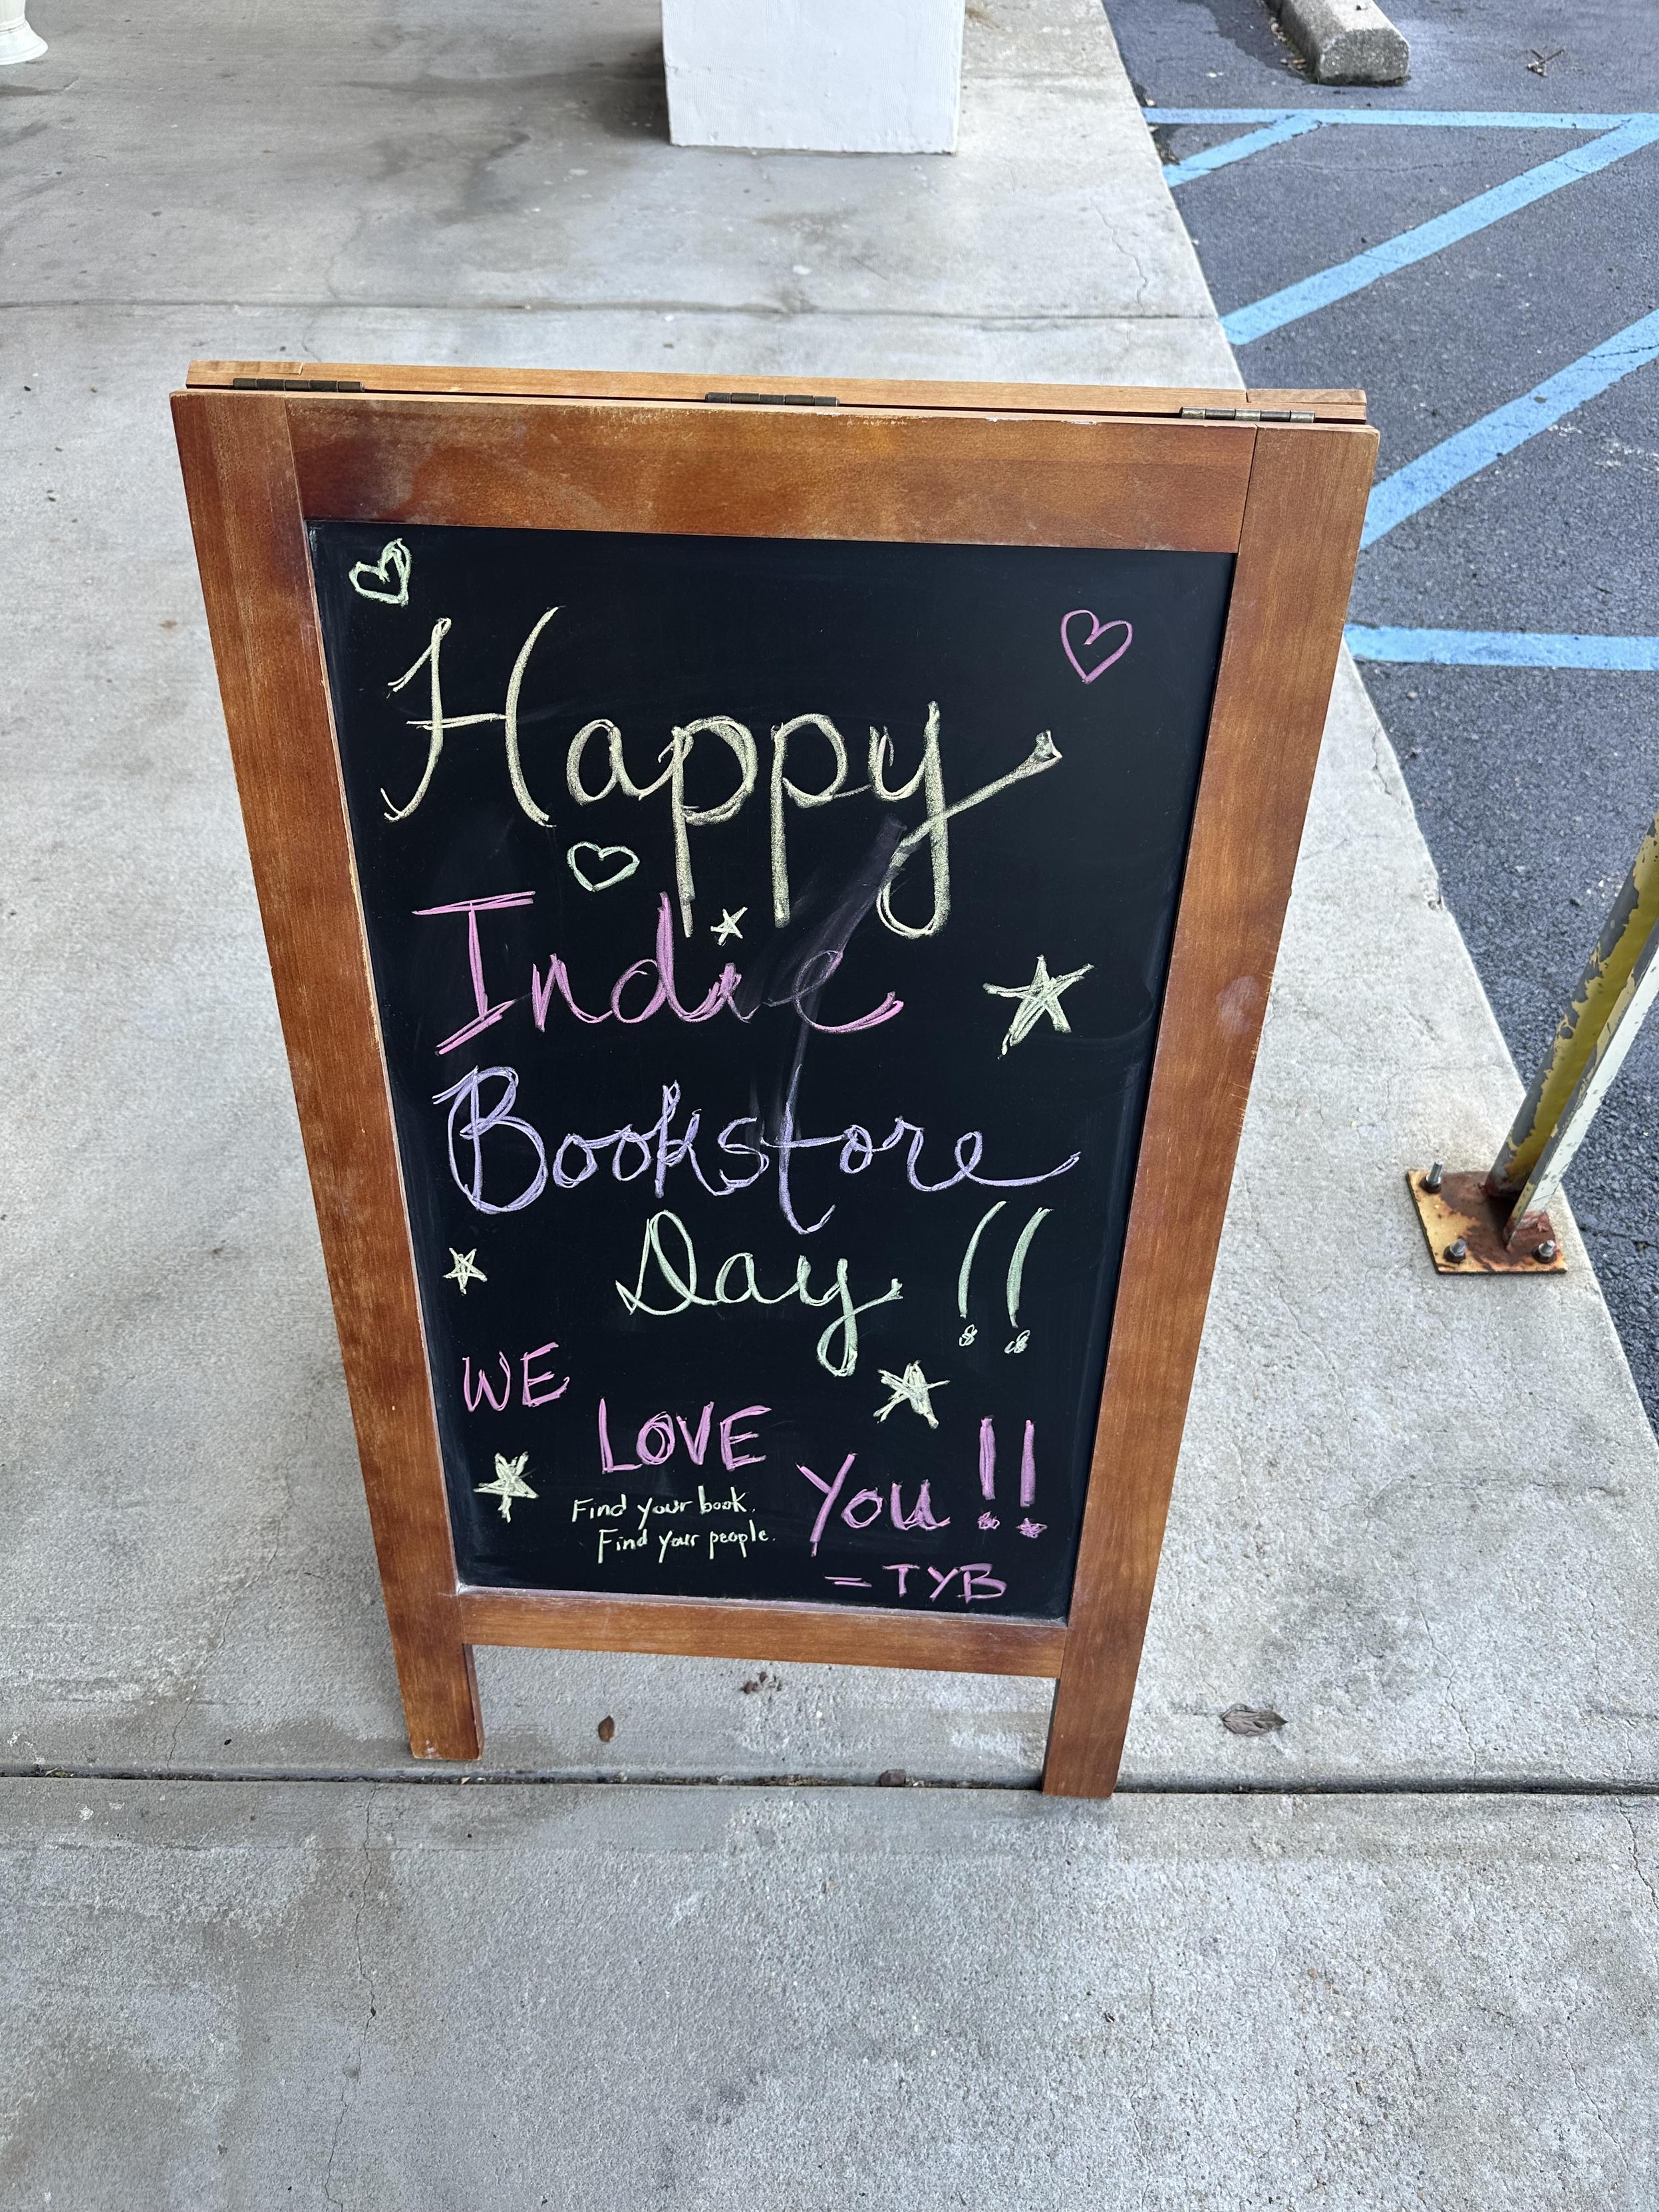 Happy
Indie
Bookstore
Day !!
WE
LOVE
You !!
Find your book.
Find your people.
= TYB